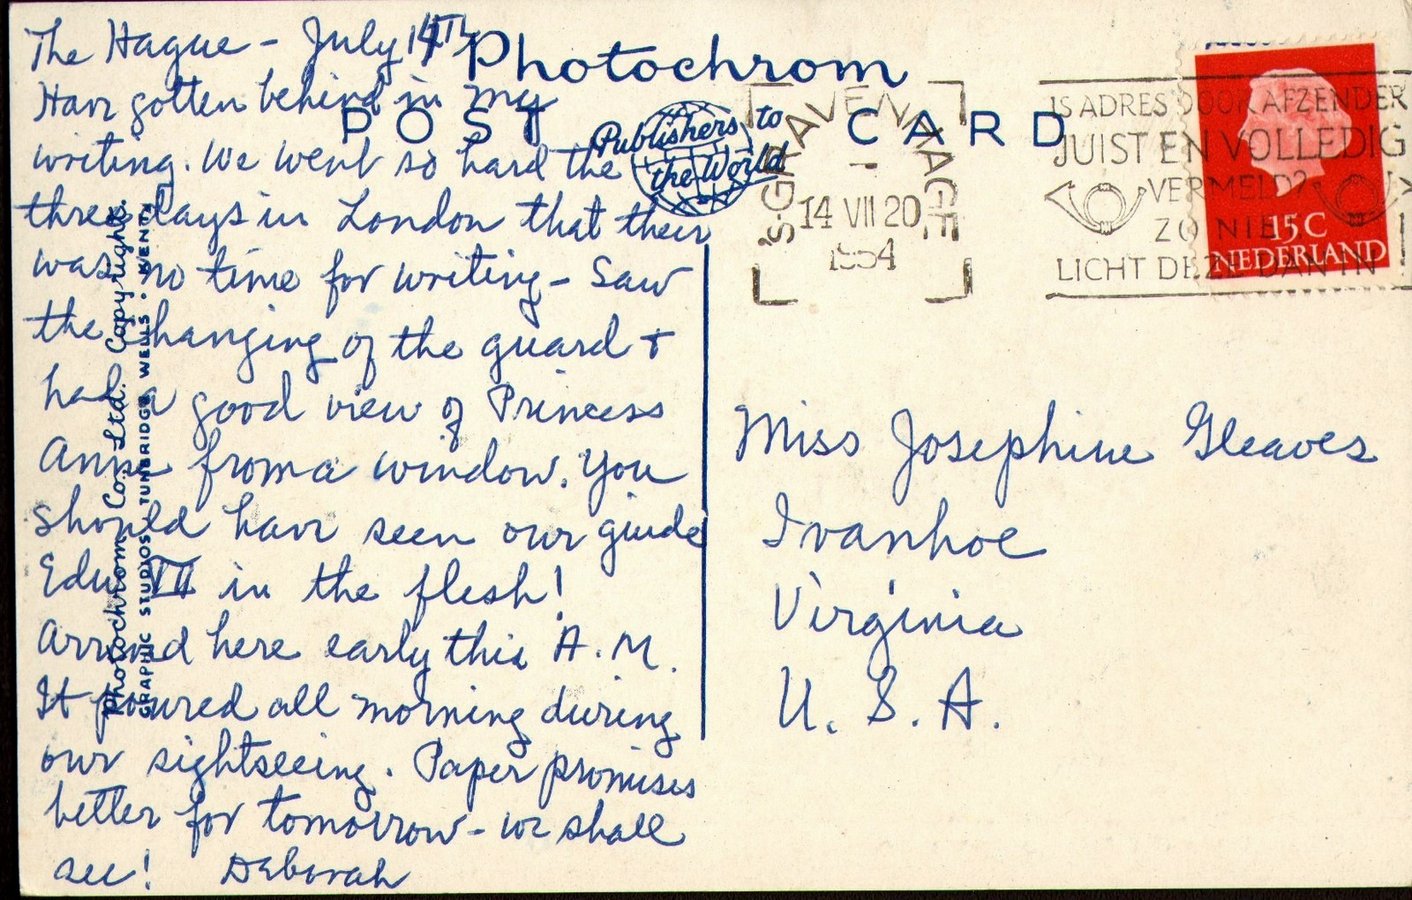 The Hague - July 14TH
Have gotten behind in my
writing. We went so hard the
three days in London that their
was no time for writing - Saw
the changing of the guard +
had a good view of Princess
Anne from a window. You
should have seen our guide
Edw VII in the flesh!
Arrived here early this A.M.
It poured all morning during
our sightseeing. Paper promises
better for tomorrow - we shall
see! Deborah
Photochrom
POST CARD
Publishers to
the World
Photochrom Co. Ltd. Copyright.
GRAPHIC STUDIOS, TUNBRIDGE WELLS · KENT
'S-GRAVENHAGE
1
14 VII 20
1954
IS ADRES DOOR AFZENDER
JUIST EN VOLLEDIG
VERMELD?
ZO NIE
LICHT DEZE DAN IN
15C
NEDERLAND
Miss Josephine Gleaves
Ivanhoe
Virginia
U.S.A.